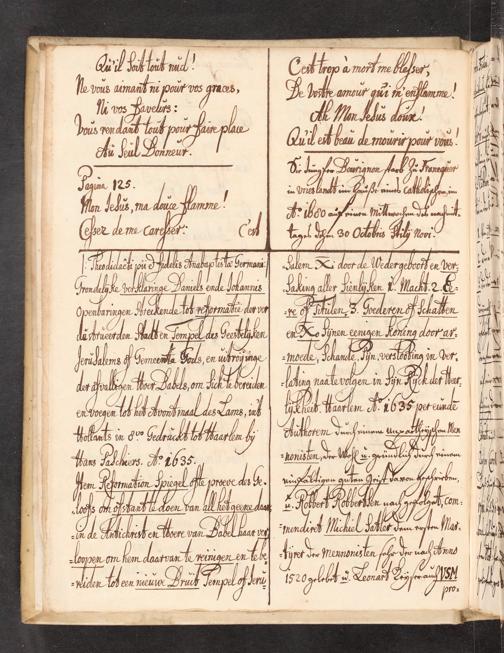 Qu'il soit tout nud!
Ne vous aimant ni pour vos graces,
Ni vos faveurs:
Vous rendant tout pour faire place
Au seul Donneur.
Pagina 125.
Mon Jesus, ma douce flamme!
Cessez de me caresser:
C'est
C'est trop à mort me blesser,
De vostre amour qui m'enflamme!
Ah Mon Jesus doux
Qu'il est beau de mourir pour vous!
Die Jungfer Bourignon starb zu Franeguer
in vrieslandt im Hauße eines Catholischen im
Aº 1680 auf einen Mittwochen
tags den 30 Octobris Stily Novi.
Theodidacti pii & fidelis Anabaptistæ Germani
Grondelyke verklaringe Daniels ende Johannes
Openbaringen streckende tot reformatie der ver
Stadt en Tempel des Geestelyken
Jerusalems of Gemeenta Gods, en uitbringinge
der afvalligen Hoer Babels, om sich te bereiden
en voegen tot het Avontmaal des Lams, uit
Hollants in 8vo Gedruckt tot Haarlem by
Hans Paschiers. Aº 1635.
Item Reformation Spiegel ofte proeve des Ge-
loofs om afstant te doen van all het gene daar
in de Antichrist en Hoere van Babel haar ver
loopen om hem daarvan te reinigen en te be-
reiden tot een nieuwe Bruit Tempel of Jeru
salem Xi door de Wedergeboort en ver-
saking aller sienlyken 1. Macht. 2. E-
re of Titulen, 3. Goederen of Schatten
en Xo synen eenigen Koning door ar-
moede, Schande, Pyn, verstooting in Ver-
lating na te volgen in syn Ryck der Heer-
lyckheit. Haarlem Aº 1635 per eundem
Authorem durch einen Men
nonisten, der Wohl u. gründlich durch einen
einfältigen guten Geist davon geschrieben,
u. Robbert Robbertsen nach gefolget, com-
mendiret Michiel Satler dem ersten Mar-
tyrer der Mennonisten sehr der nach Anno
1520 gelebet u. Leonard Keyser auch NSM
pro-